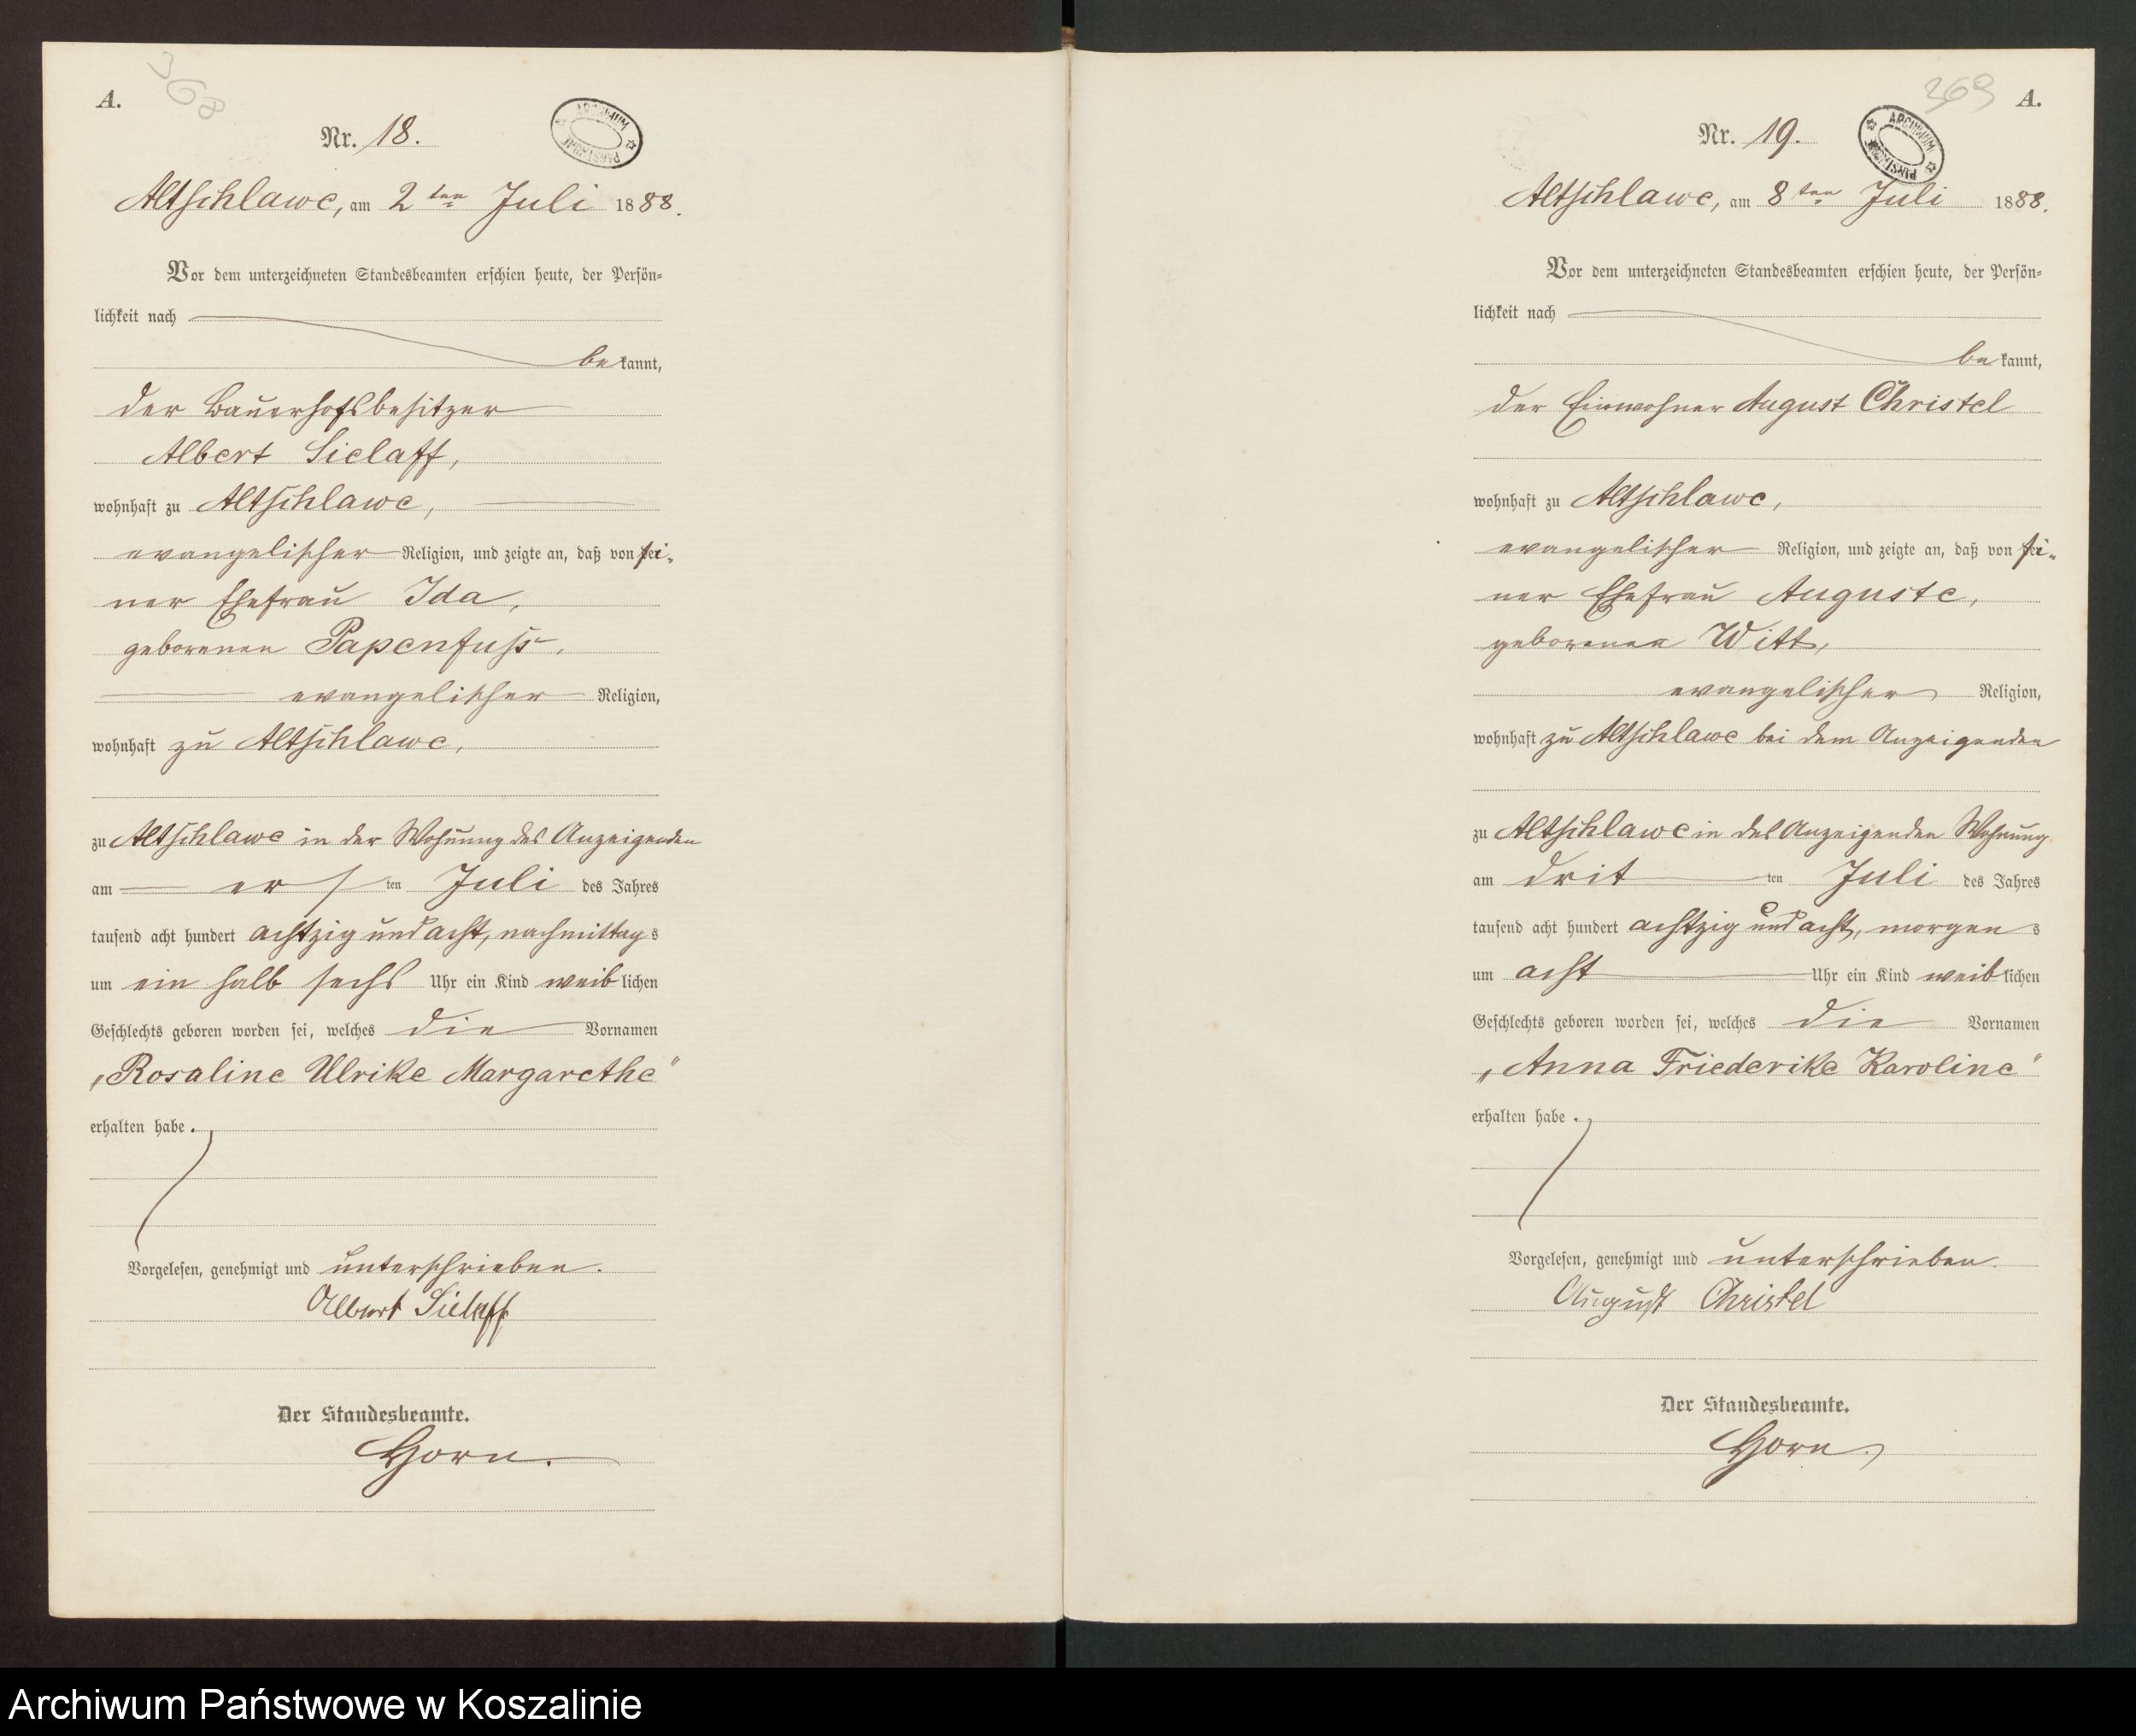 A.
368
Nr. 18.
ARCHIWUM PAŃSTWOWE
Altschlawe, am 2 ten Juli 1888.
Vor dem unterzeichneten Standesbeamten erschien heute, der Persön-
lichkeit nach
bekannt,
der Bauerhofsbesitzer
Albert Sielaff,
wohnhaft zu Altschlawe,
evangelischer Religion, und zeigte an, daß von sei-
ner Ehefrau Ida,
geborenen Papenfuss,
evangelischer Religion,
wohnhaft zu Altschlawe,
zu Altschlawe in der Wohnung des Anzeigenden
am ersten Juli des Jahres
tausend acht hundert achtzig und acht, nachmittags
um ein halb sechs Uhr ein Kind weiblichen
Geschlechts geboren worden sei, welches die Vornamen
„Rosaline Ulrike Margarethe"
erhalten habe.
Vorgelesen, genehmigt und unterschrieben.
Albert Sielaff
Der Standesbeamte.
Horn.
369
A.
Nr. 19.
ARCHIWUM PAŃSTWOWE
Altschlawe, am 8 ten Juli 1888.
Vor dem unterzeichneten Standesbeamten erschien heute, der Persön-
lichkeit nach
bekannt,
der Einwohner August Christel
wohnhaft zu Altschlawe,
evangelischer Religion, und zeigte an, daß von sei-
ner Ehefrau Auguste,
geborenen Witt,
evangelischer Religion,
wohnhaft zu Altschlawe bei dem Anzeigenden
zu Altschlawe in des Anzeigenden Wohnung
am dritten Juli des Jahres
tausend acht hundert achtzig und acht, morgens
um acht Uhr ein Kind weiblichen
Geschlechts geboren worden sei, welches die Vornamen
„Anna Friederike Karoline"
erhalten habe.
Vorgelesen, genehmigt und unterschrieben.
August Christel
Der Standesbeamte.
Horn.
Archiwum Państwowe w Koszalinie